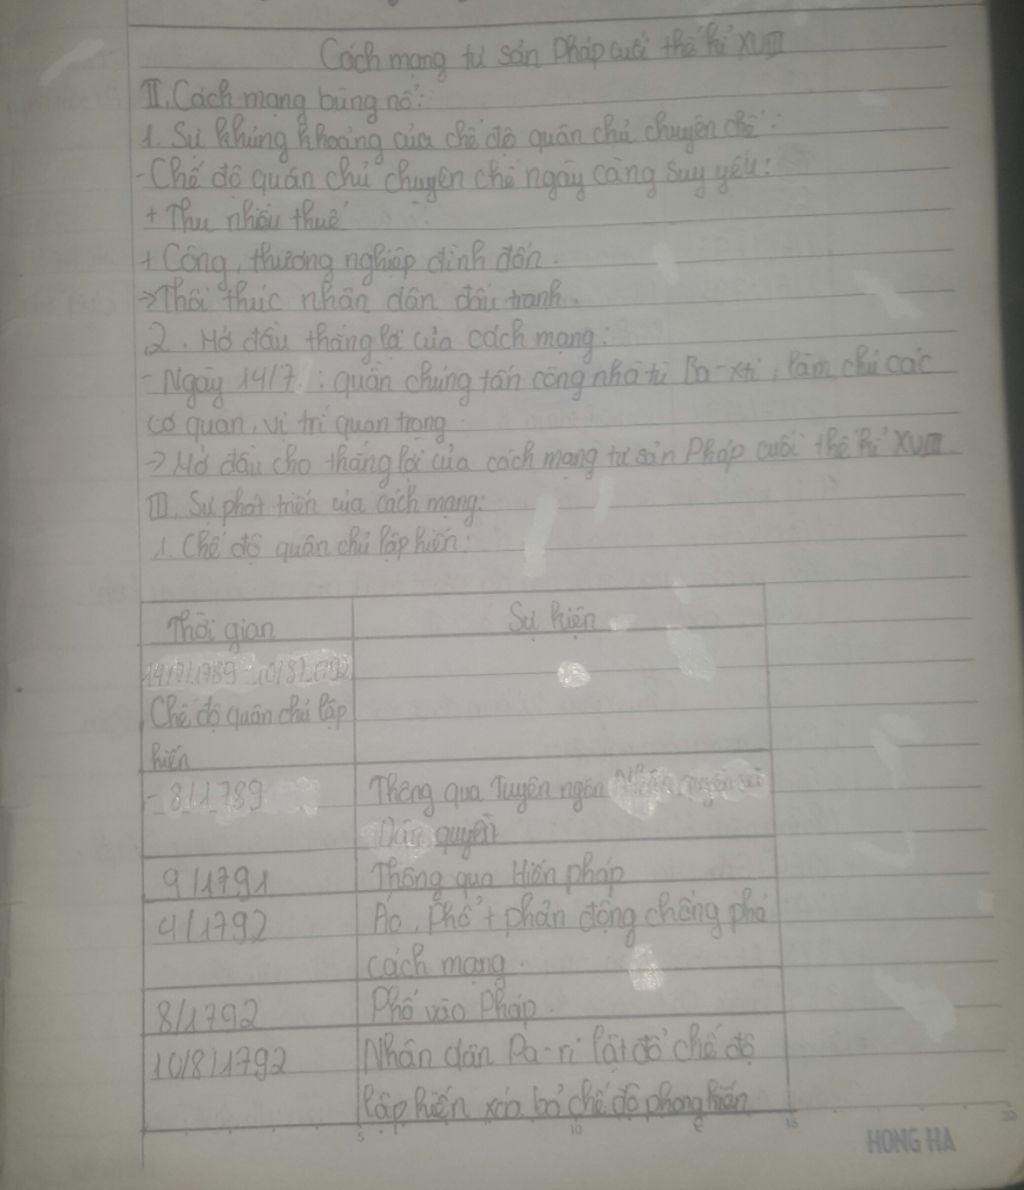 Cách mạng tư sản Pháp cuối thế kỉ XVIII
II. Cách mạng bùng nổ:
1. Sự khủng khoảng của chế độ quân chủ chuyên chế:
- Chế độ quân chủ chuyên chế ngày càng suy yếu:
+ Thu nhiều thuế
+ Công, thương nghiệp đình đốn.
→ Thôi thúc nhân dân đấu tranh.
2. Mở đầu thắng lợi của cách mạng:
- Ngày 14/7: quần chúng tấn công nhà tù Ba-xti, làm chủ các
cơ quan, vị trí quan trọng.
→ Mở đầu cho thắng lợi của cách mạng tư sản Pháp cuối thế kỉ XVIII.
III. Sự phát triển của cách mạng:
1. Chế độ quân chủ lập hiến:
Thời gian
Sự kiện
14/7/1789 - 10/8/1792
Chế độ quân chủ lập
hiến
- 8/1789
Thông qua Tuyên ngôn Nhân quyền và
Dân quyền
9/1791
Thông qua Hiến pháp
4/1792
Áo, Phổ + phản động chống phá
cách mạng.
8/1792
Phổ vào Pháp.
10/8/1792
Nhân dân Pa-ri lật đổ chế độ
lập hiến xóa bỏ chế độ phong kiến
5 10 15 20
HONG HA